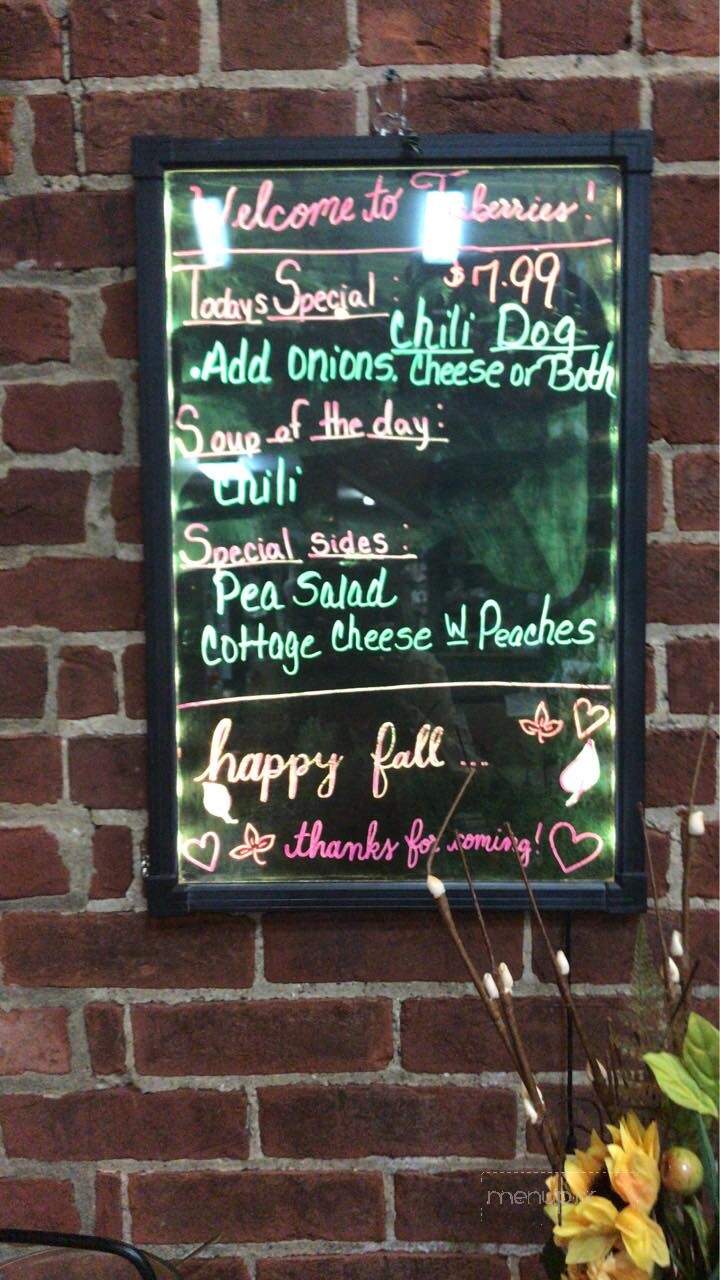 Welcome to
Todays Special: $7.99
Chili Dog
.Add onions. Cheese or Both
Soup of the day:
Chili
Special sides:
Pea Salad
Cottage Cheese W Peaches
happy fall ...
thanks for coming!